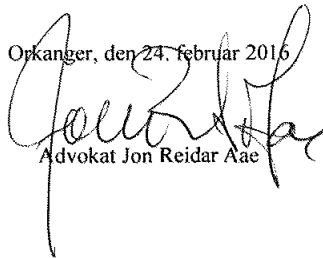 Orkanger, den 24. februar 2016
Advokat Jon Reidar Aae